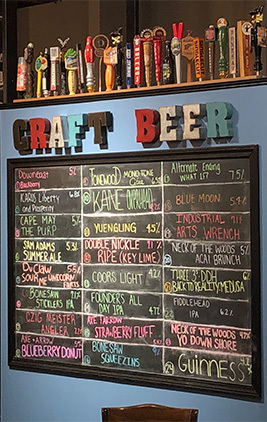 CRAFT BEER
Downeast 5%
Blackberry
KARS Liberty
and Prosperity
CAPE MAY 5%
THE PURP
SAM ADAMS 5.3%
SUMMER ALE
DUCLAW 5.5%
SOUR ME UNICORN
FARTS
BONESAW
STICKLERS IPA
CZIG MEISTER
ANGLER
AXE + ARROW
BLUEBERRY DONUT
TONEWOOD MONOTONE
KANE OVERHEAD
YUENGLING 4.5%
DOUBLE NICKLE
RIPE (KEY LIME)
COORS LIGHT 4.2%
FOUNDERS ALL
DAY IPA
AXE + ARROW
STRAWBERRY FLUFF
BONESAW
SQUEEZINS
Alternate Ending 7.5%
WHAT IF?
BLUE MOON 5.4%
INDUSTRIAL 7.1%
ARTS WRENCH
NECK OF THE WOODS 5%
ACAI BRUNCH
THREE 3'S DDH
BACK TO REALITY MEDUSA
FIDDLEHEAD
IPA
NECK OF THE WOODS
YO DOWN SHORE
GUINNESS